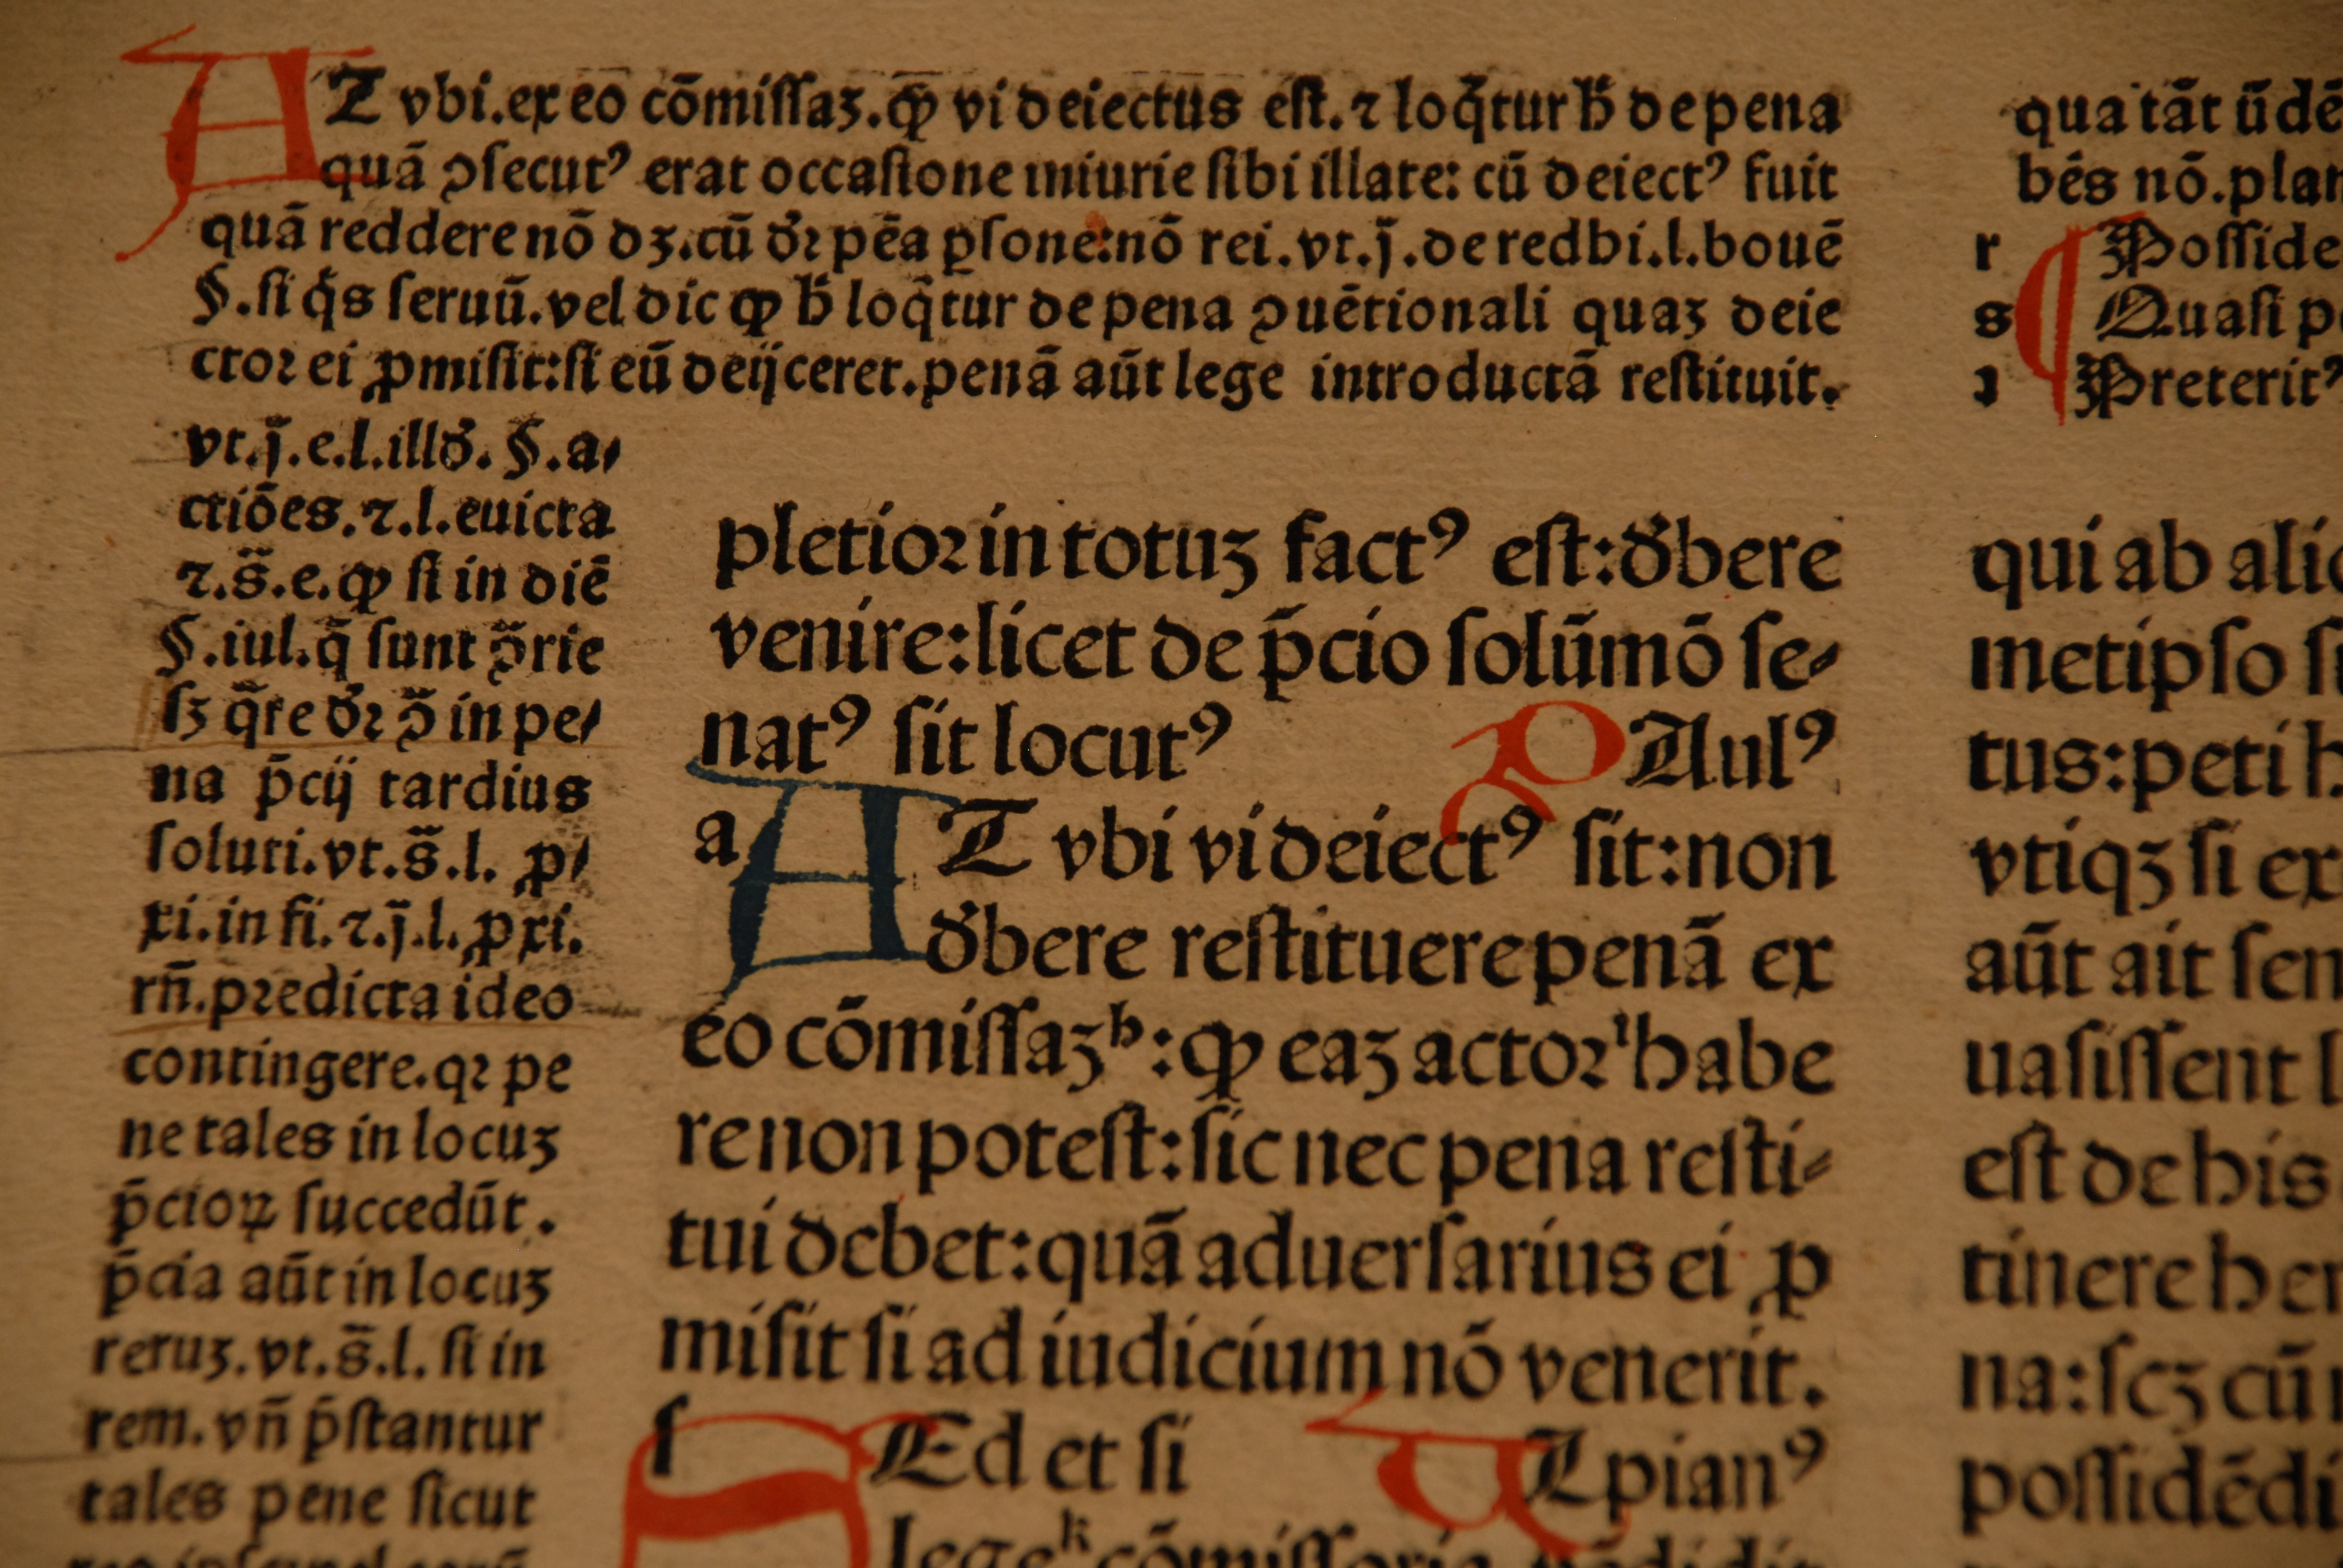 AT vbi.ex eo cōmissaꝫ.ꝙ̄ vi deiectus est.⁊ loq̄tur h̄ de pena
quā ꝯsecutꝰ erat occasione iniurie sibi illate: cū deiectꝰ fuit
quā reddere nō dꝫ.cū d̄r pēa ꝑsone:nō rei.vt.j̄.de redhi.l.bouē
§.si q̇s seruū.vel dic ꝙ h̄ loq̄tur de pena ꝯuētionali quaꝫ deie
ctor ei ꝓmisit:si eū deijceret.penā aūt lege introductā restituit.
vt.j̄.e.l.illd̄. §.a/
ctiōes.⁊.l.euicta
⁊.s̄.e.ꝙ si in diē
§.iul.q̄ sunt ꝯ̄rie
sꝫ q̄re d̄r ꝯ̄ in pe/
na p̄cij tardius
soluti.vt.s̄.l. ꝓ/
xi.in fi.⁊.j̄.l.ꝓxi.
rn̄.predicta ideo
contingere.qꝛ pe
ne tales in locuꝫ
p̄cioꝝ succedūt.
p̄cia aūt in locuꝫ
reruꝫ.vt.s̄.l. si in
rem.vn̄ p̄stantur
tales pene sicut
pletior in totuꝫ factꝰ est:d̄bere
venire:licet de p̄cio solūmō se⸗
natꝰ sit locutꝰ PAulꝰ
a AT vbi vi deiectꝰ sit:non
d̄bere restituere penā ex
eo cōmissaꝫʰ:ꝙ eaꝫ actorⁱ habe
re non potest:sic nec pena resti⸗
tui debet:quā aduersarius ei ꝓ
misit si ad iudicium nō venerit.
ſ SEd et si VLpianꝰ
legeᵏ cōmissoria
qua tāt ūdē
bēs nō.
r Posside
s Quasi
t Preteritꝰ
qui ab
metipso
tus:peti
vtiqꝫ si ex
aūt ait
uasissent
est de his
tinere
na:scꝫ cū